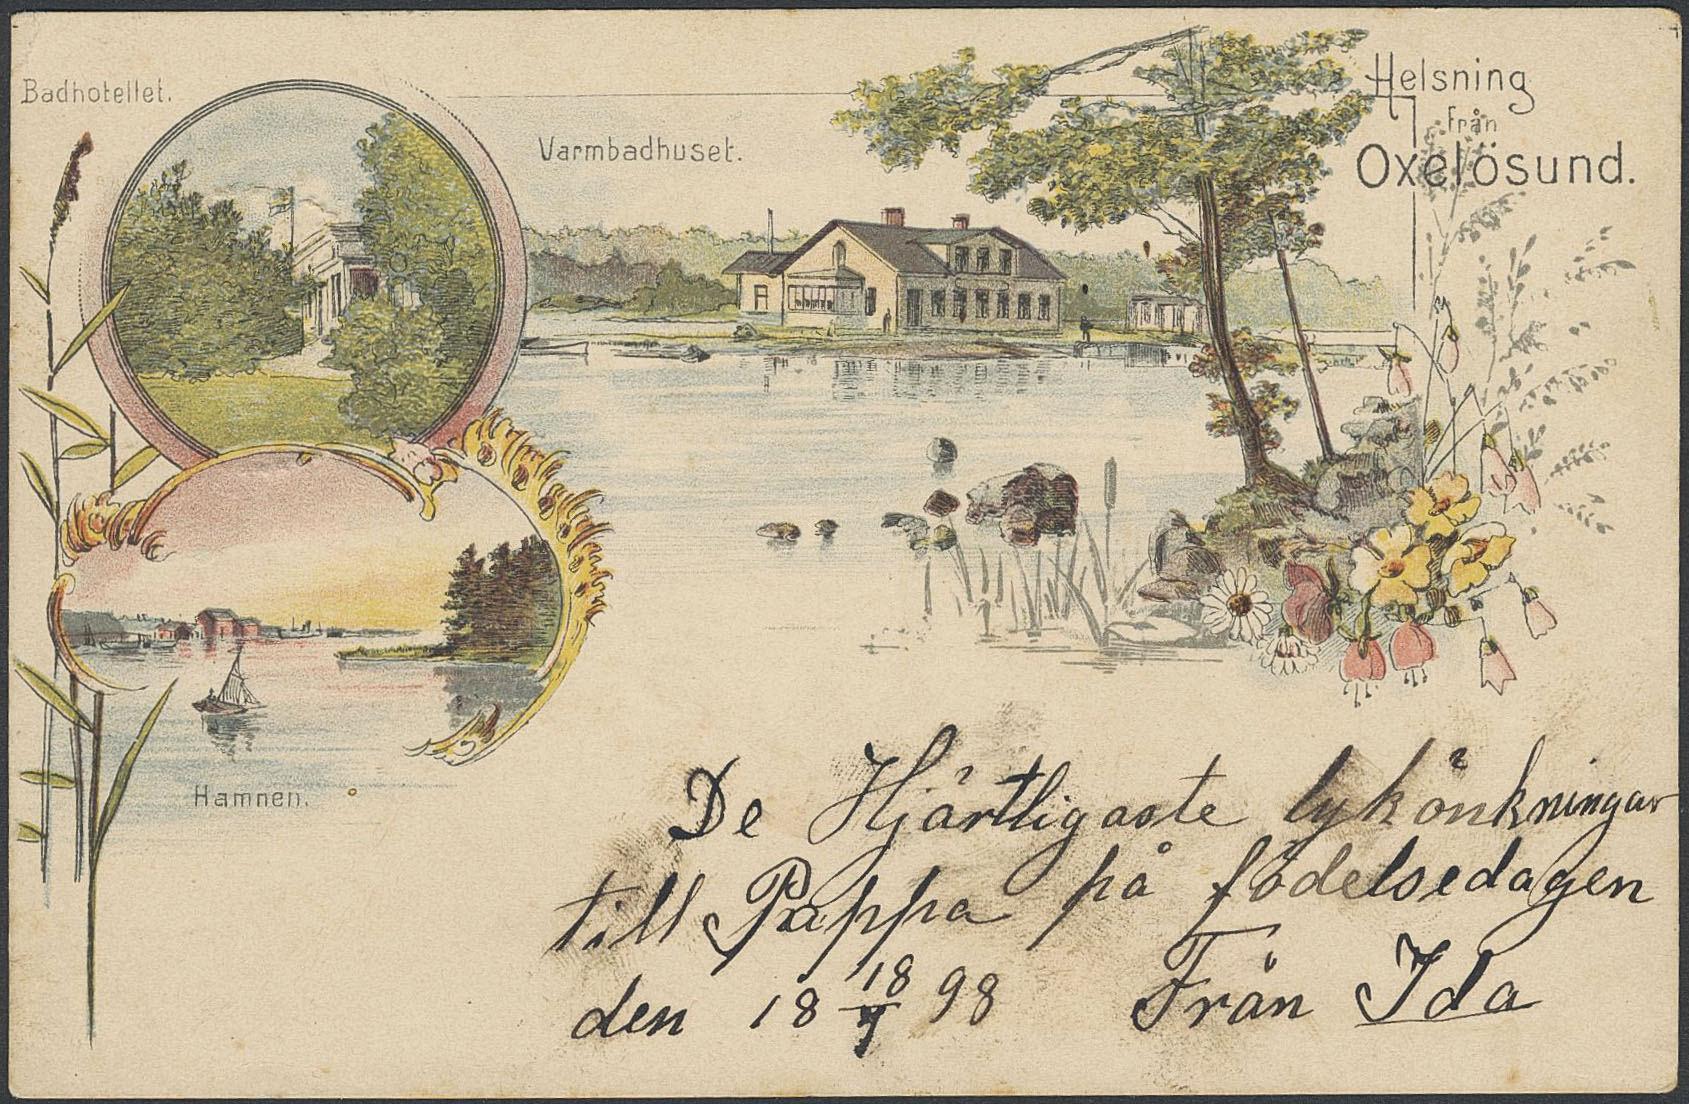 Badhotellet.
Varmbadhuset.
Helsning
från
Oxelösund.
Hamnen.
De Hjärtligaste lykönkningar
till Pappa på födelsedagen
den 18 18/7 98 Från Ida